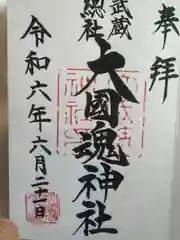 奉拝
武蔵
總社
大國魂神社
令和六年六月二十日